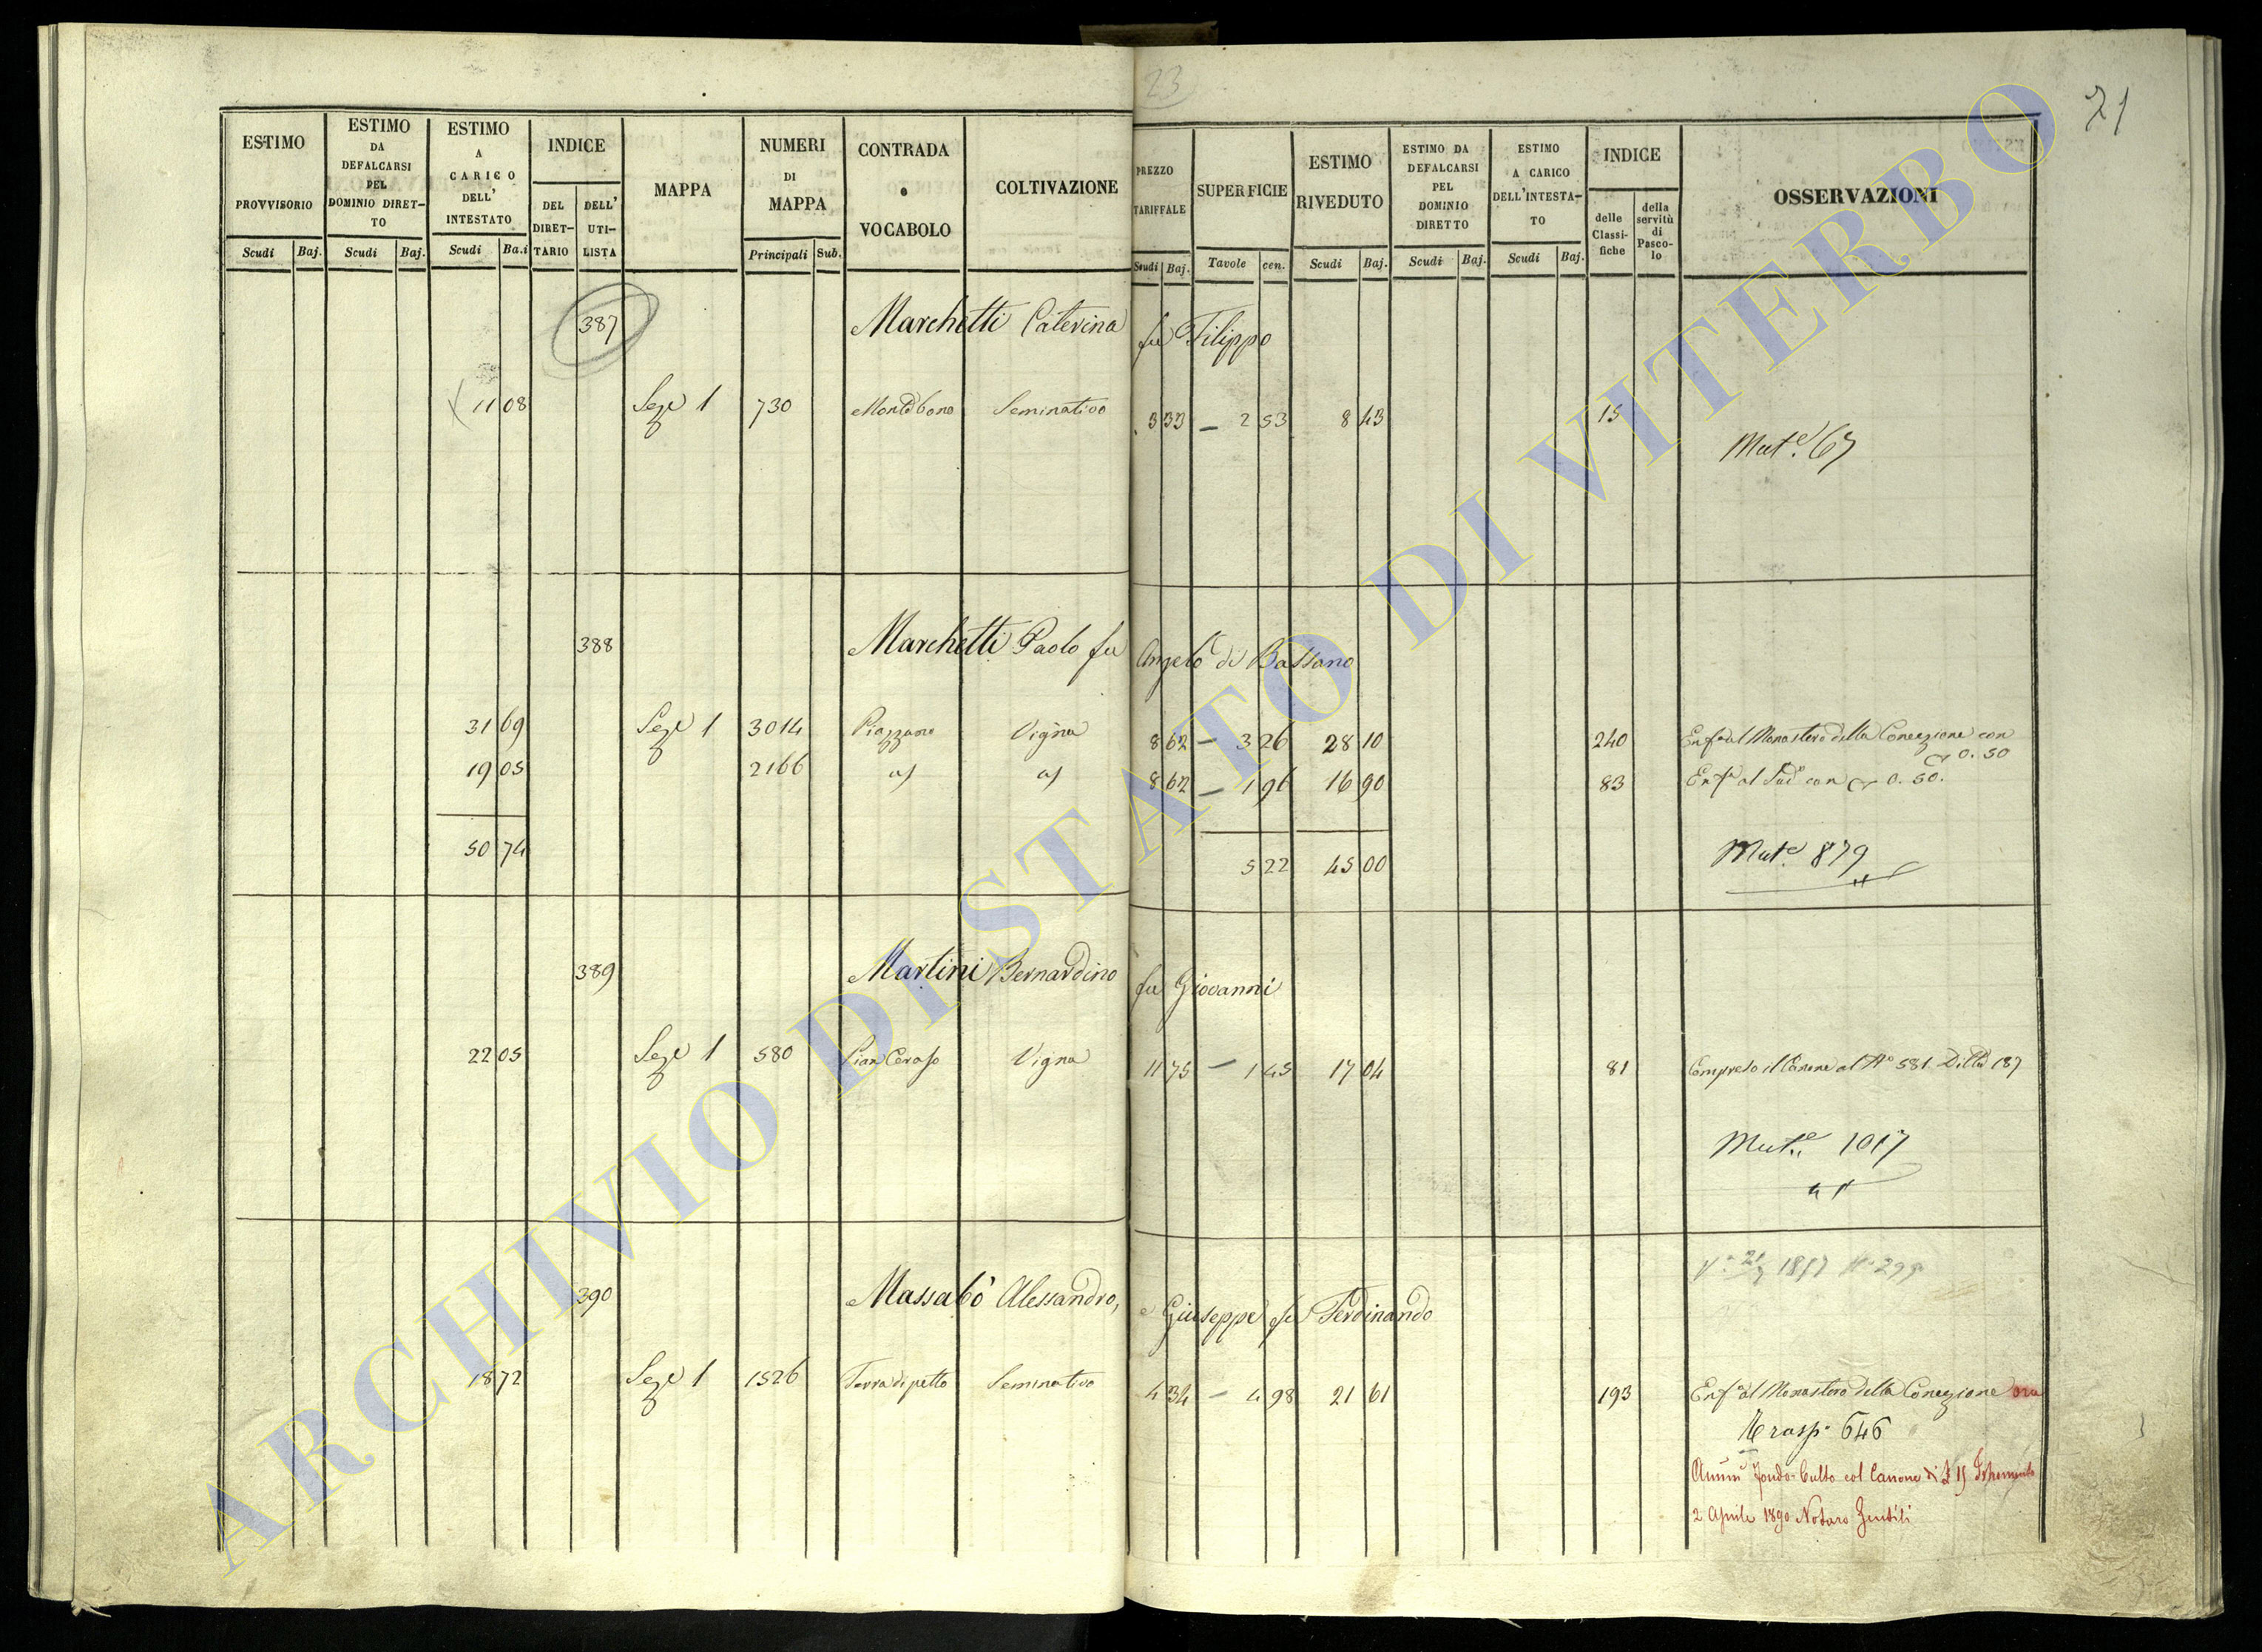 23
71
ESTIMO PROVVISORIO
ESTIMO DA DEFALCARSI PEL DOMINIO DIRET-TO
ESTIMO A CARICO DELL' INTESTATO
INDICE
DEL DIRET-TARIO
DELL' UTI-LISTA
MAPPA
NUMERI DI MAPPA
CONTRADA o VOCABOLO
COLTIVAZIONE
PREZZO TARIFFALE
SUPERFICIE
ESTIMO RIVEDUTO
ESTIMO DA DEFALCARSI PEL DOMINIO DIRETTO
ESTIMO A CARICO DELL'INTESTA-TO
INDICE
delle Classi-fiche
della servitù di Pasco-lo
OSSERVAZIONI
Scudi Baj. Scudi Baj. Scudi Ba.i Principali Sub. Scudi Baj. Tavole cen. Scudi Baj. Scudi Baj. Scudi Baj.
387 Marchetti Caterina fu Filippo
11 08 Seze 1 730 Montebono Seminativo 3 33 — 2 53 8 43 15
Mut.e 67
388 Marchetti Paolo fu Angelo di Bassano
31 69 Seze 1 3014 Piazzano Vigna 8 62 — 3 26 28 10 240 Enf.a al Monastero della Concezione con
0.50
19 05 2166 8 62 — 1 96 16 90 83 Enf.a al Sud.o con 0.50.
50 74 5 22 45 00 Mut.e 879
389 Martini Bernardino fu Giovanni
22 05 Seze 1 580 Pian Ceraso Vigna 11 75 — 1 45 17 04 81 Compreso il Canone al N.o 581 187
Mut.e 1017
1857 N.o 299
390 Massabò Alessandro, e Giuseppe fu Ferdinando
18 72 Seze 1 1526 Terra di petto Seminativo 4 34 — 4 98 21 61 193 Enf.a al Monastero della Concezione ora
Trasp. 646
Fondo Culto col Canone di £ 15 Istrumento
2 Aprile 1890 Notaro Gentili
ARCHIVIO DI STATO DI VITERBO